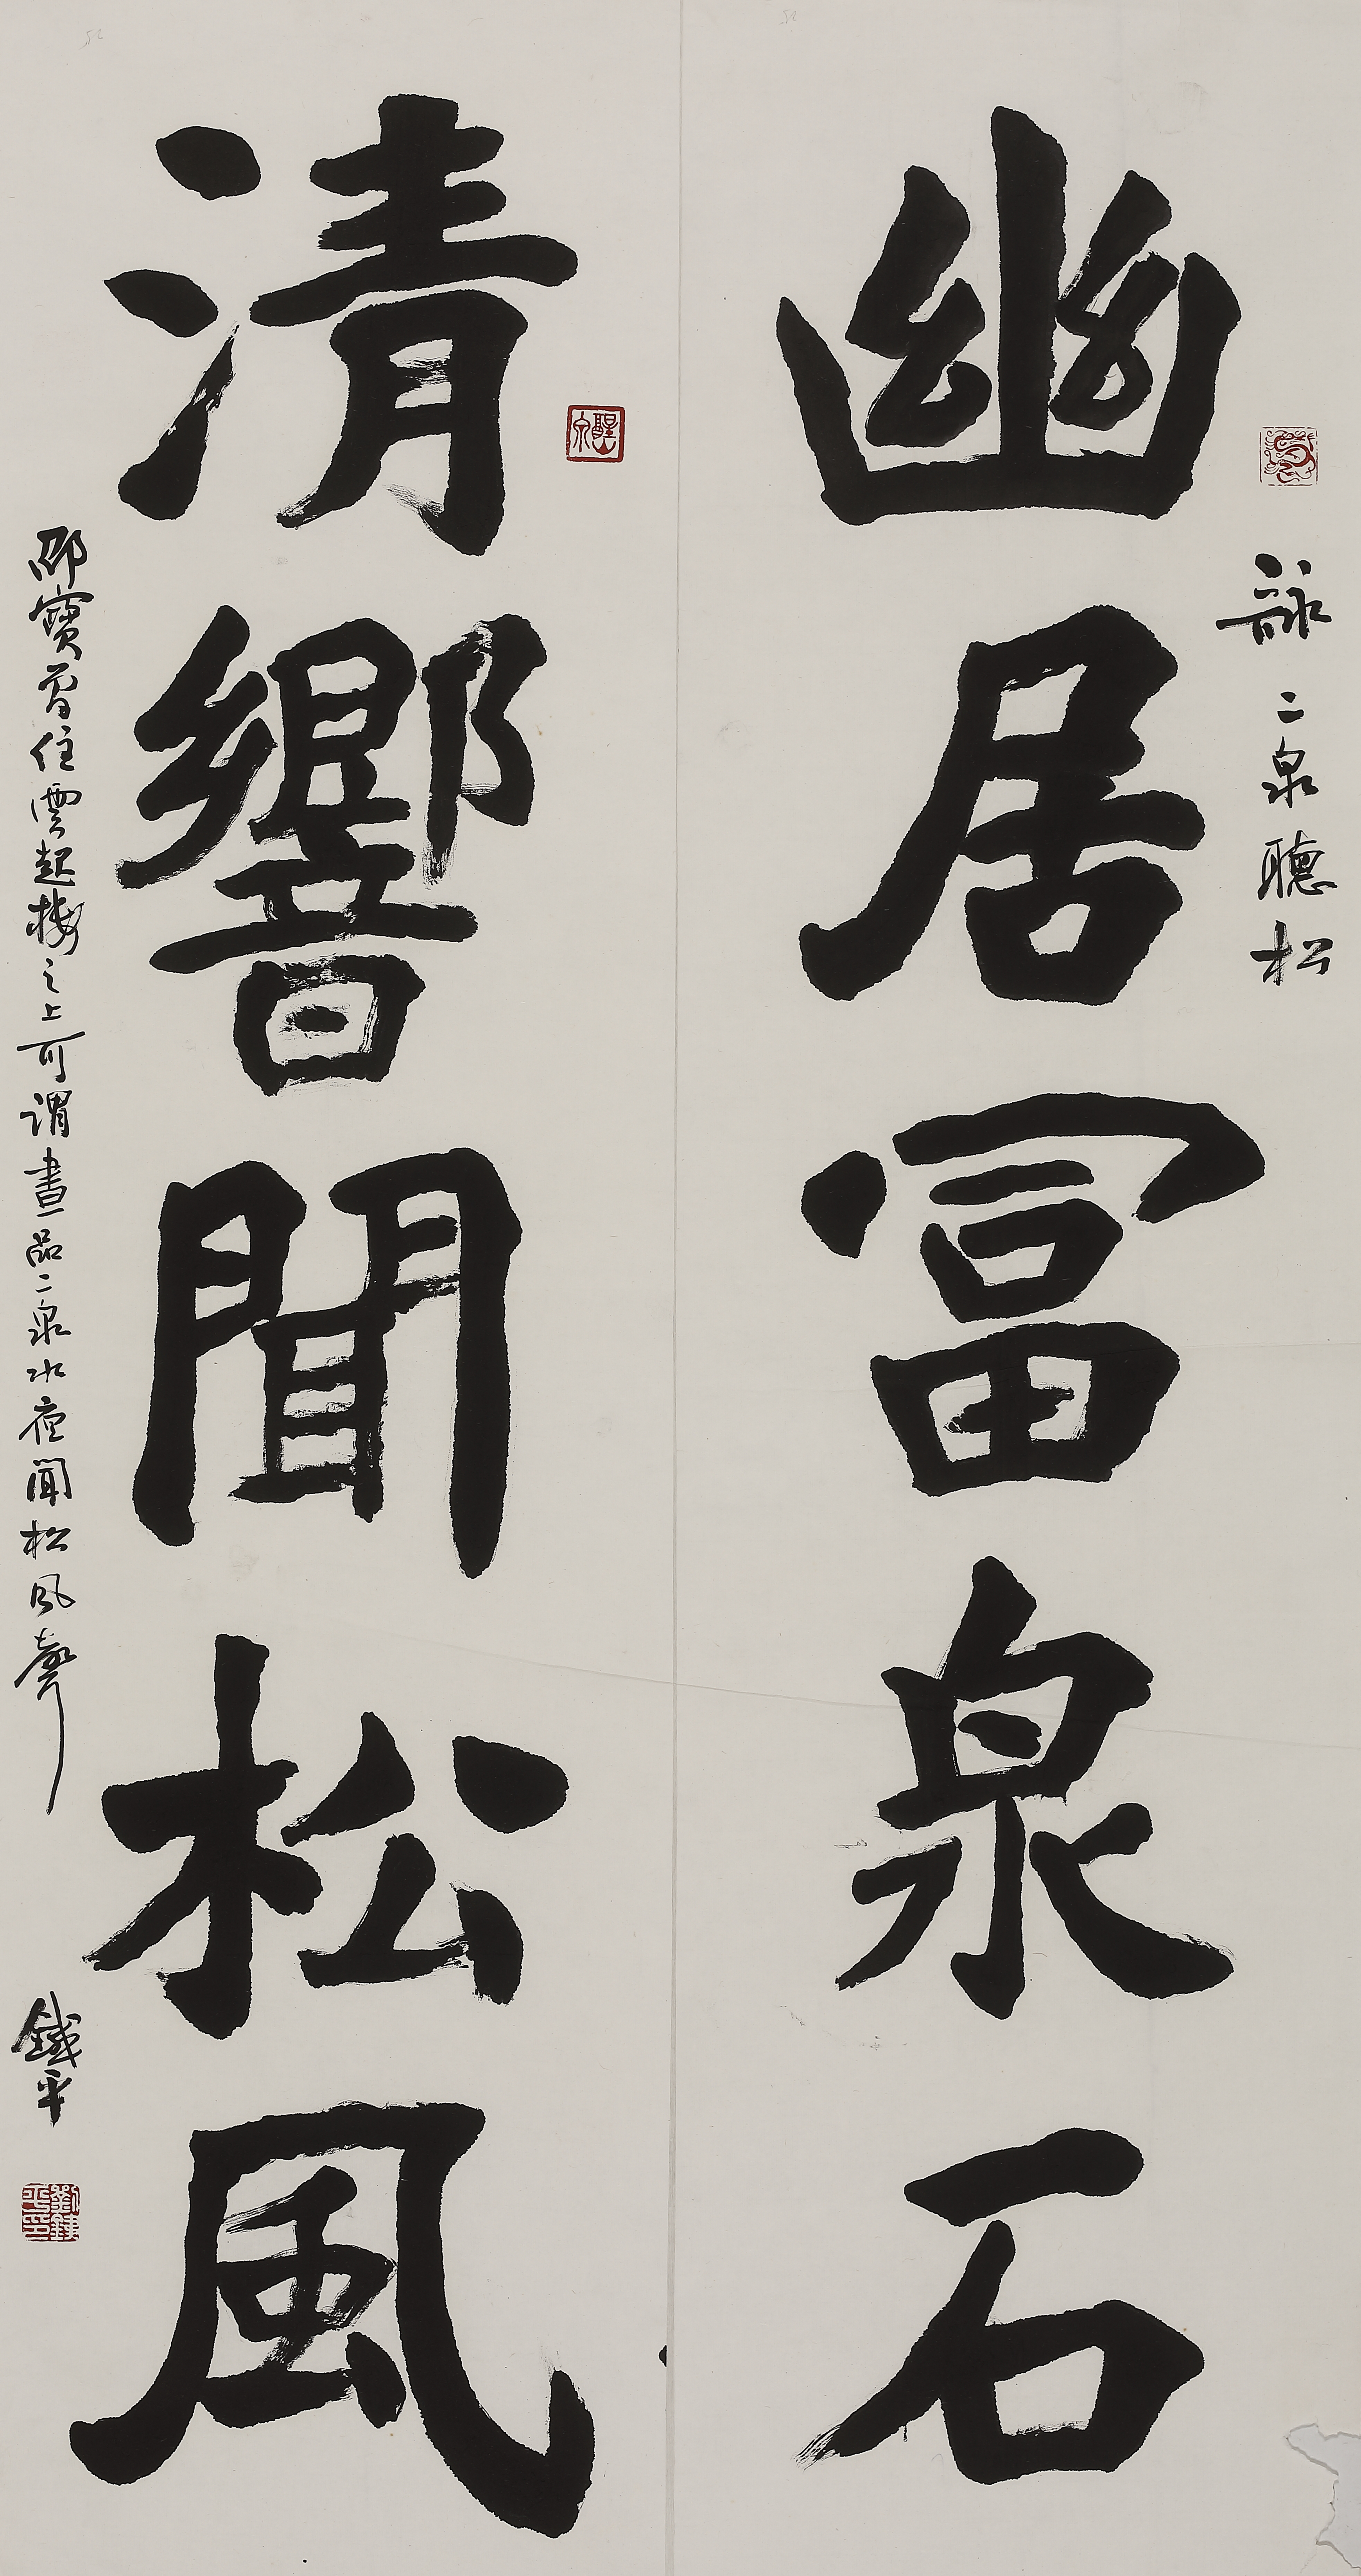 詠二泉聽松
幽居富泉石
清響聞松風
邵寶曾住雲起樓之上可謂晝品二泉水夜聞松風聲
鐵平